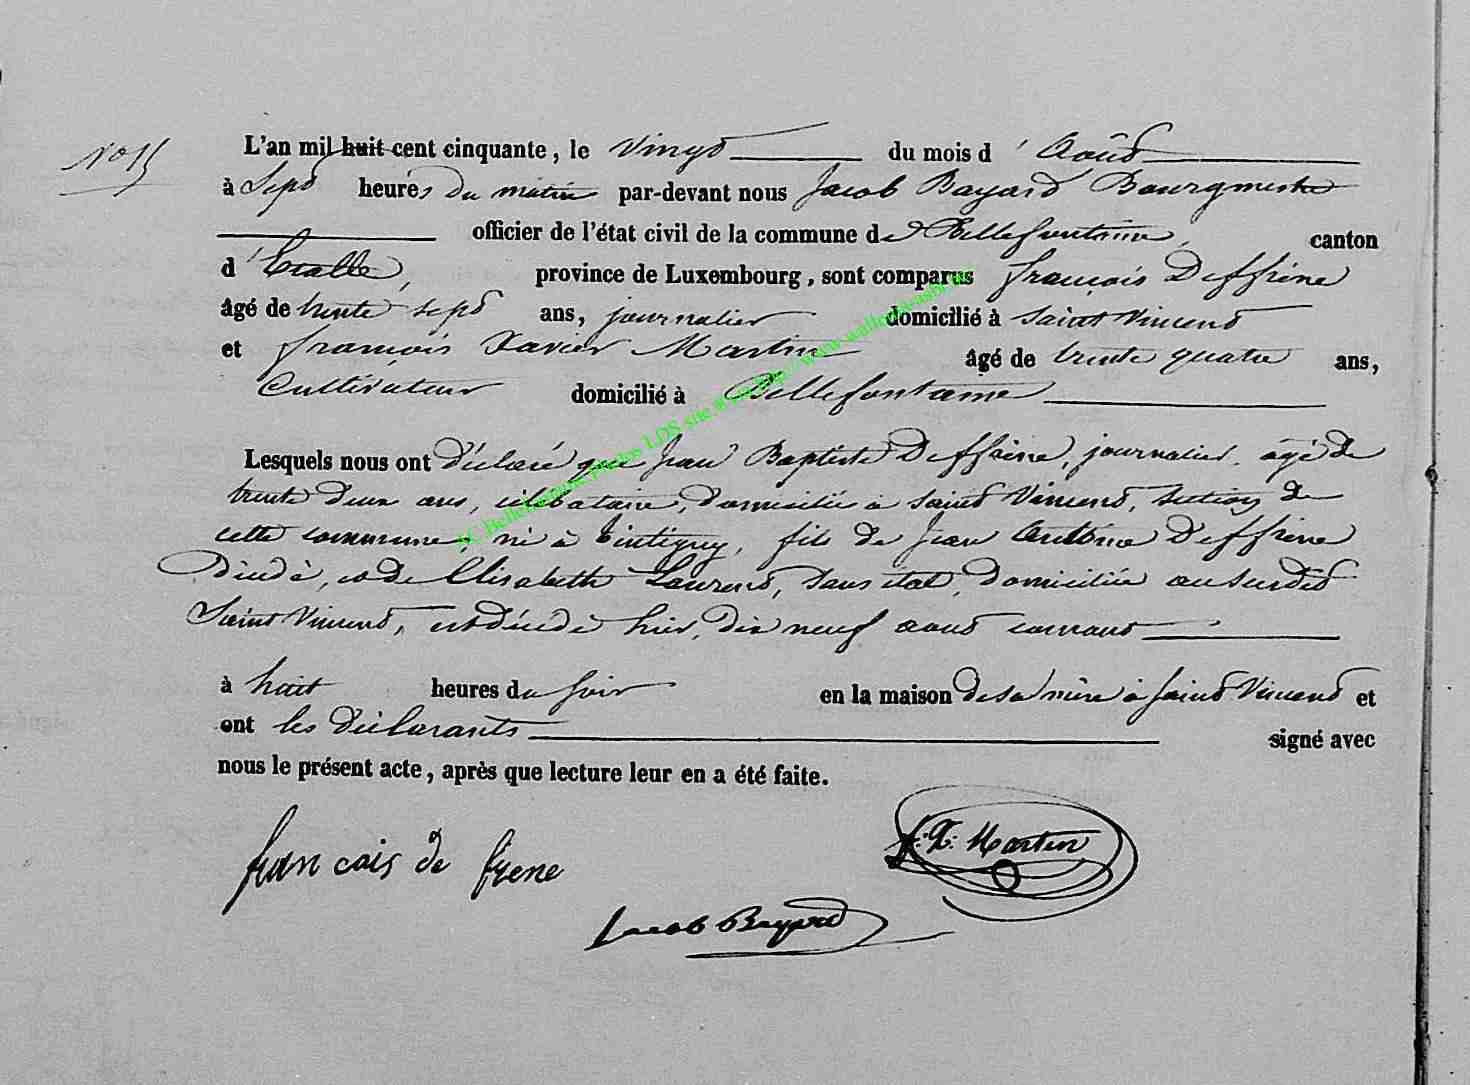 No 15
L'an mil huit cent cinquante, le Vingt du mois d' Août
à Sept heures du matin par-devant nous Jacob Bayard Bourgmestre
officier de l'état civil de la commune de Bellefontaine, canton
d'Etalle, province de Luxembourg, sont comparus françois Deffrène
âgé de trente sept ans, journalier domicilié à Saint Vincent
et françois Xavier Martin âgé de trente quatre ans,
Cultivateur domicilié à Bellefontaine
Lesquels nous ont déclaré que Jean Baptiste Deffrène, journalier, âgé de
trente deux ans, célibataire, domicilié à Saint Vincent, section de
cette commune, né à Tintigny, fils de Jean Antoine Deffrène
Décédé, et de Elisabeth Laurent, sans état, domiciliée au susdit
Saint Vincent, est décédé hier, dix neuf août courant
à huit heures du soir en la maison de sa mère à Saint Vincent et
ont les déclarants signé avec
nous le présent acte, après que lecture leur en a été faite.
francois de frene
f: X: Martin
Jacob Bayard